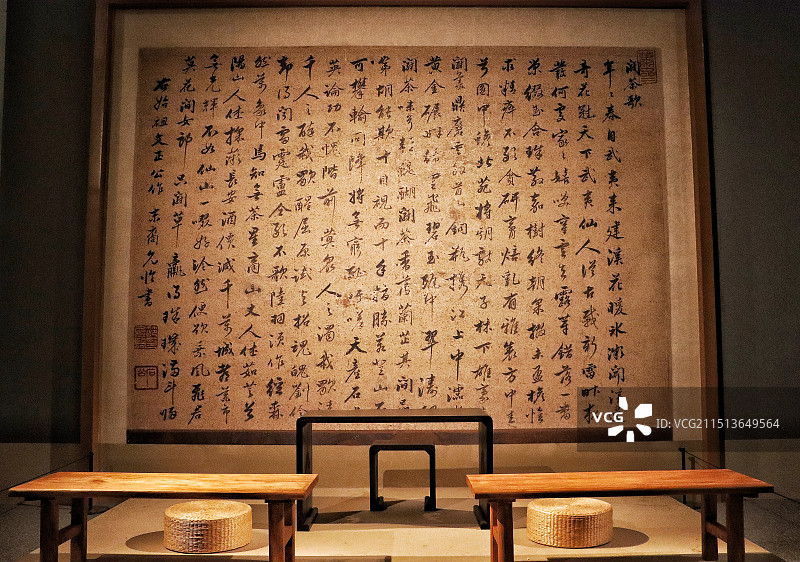 鬪茶歌
年々春自武夷来建溪花暖氷微開
奇花冠天下武夷仙人従古栽新雷昨
發何處家々嬉笑穿雲去露芽錯落一番
榮綴玉含珠散嘉樹終朝采掇未盈襜惟
求精粹不敢貪研膏焙乳有雅製方中圭
兮圓中蟾北苑將期獻天子林下雄豪
鬪美鼎磨雲外首山銅瓶攜江上中濡
黄金碾畔緑塵飛碧玉甌中翠濤
鬪茶味兮輕醍醐鬪茶香兮薄蘭芷其間品
第胡能欺十目視而十手指勝若登仙不
可攀輸同降將無窮恥吁嗟天產石上
英論功不愧階前蓂衆人之濁我歌清
千人之醉我歌醒屈原試与招魂魄劉伶
却得聞雷霆盧仝敢不歌陸羽須作經森
然萬象中焉知無茶星商山丈人休茹芝首
陽山人休採薇長安酒價減千萬城都藥市
無光輝不如仙山一啜好泠然便欲乘風飛君
莫花間女郎只鬪草贏得珠璣滿斗歸
右始祖文正公作 東齋允書
VCG
VCG ID:VCG211513649564